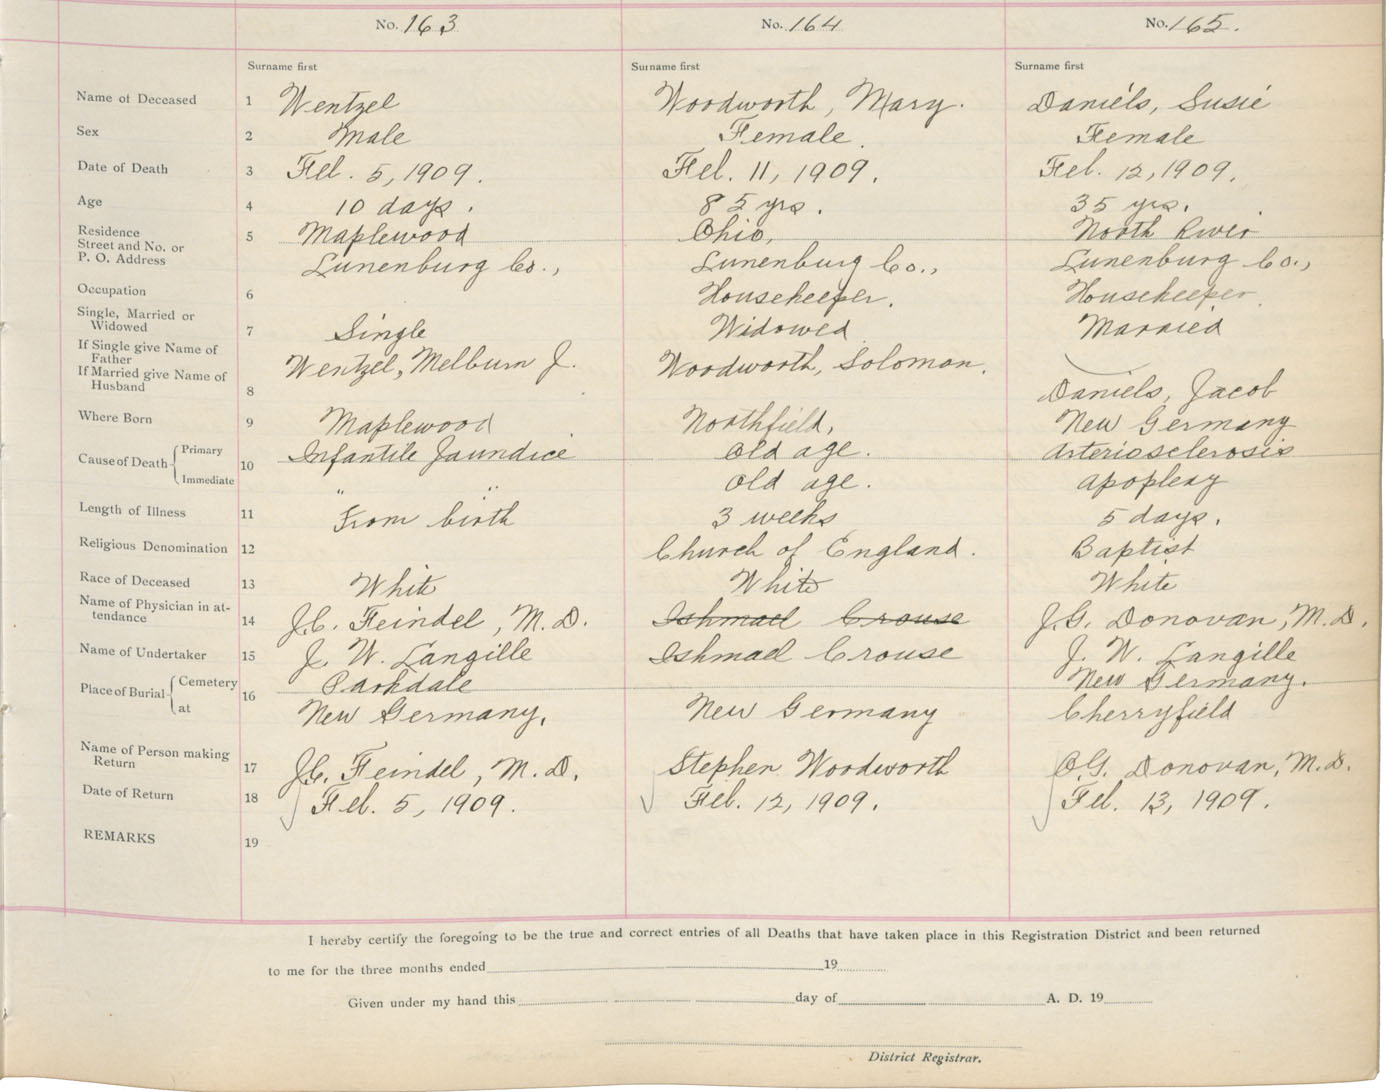 No. 163 No. 164 No. 165.
Surname first Surname first Surname first
Name of Deceased 1 Wentzel Woodworth, Mary. Daniels, Susie
Sex 2 Male Female. Female
Date of Death 3 Feb. 5, 1909. Feb. 11, 1909. Feb. 12, 1909.
Age 4 10 days. 85 yrs. 35 yrs.
Residence
Street and No. or
P. O. Address 5 Maplewood Ohio, North River
Lunenburg Co., Lunenburg Co., Lunenburg Co.,
Occupation 6 Housekeeper. Housekeeper.
Single, Married or
Widowed 7 Single Widowed Married
If Single give Name of
Father Wentzel, Melburn J. Woodworth, Solomon.
If Married give Name of
Husband 8 Daniels, Jacob
Where Born 9 Maplewood Northfield, New Germany
Cause of Death 10 Primary Infantile Jaundice Old age. Arteriosclerosis
Immediate " " Old age. Apoplexy
Length of Illness 11 From birth 3 weeks 5 days.
Religious Denomination 12 Church of England. Baptist
Race of Deceased 13 White White White
Name of Physician in at-
tendance 14 J.C. Feindel, M.D. Ishmael Crouse J.G. Donovan, M.D.
Name of Undertaker 15 J. W. Langille Ishmael Crouse J. W. Langille
Place of Burial 16 Cemetery Parkdale New Germany.
at New Germany, New Germany Cherryfield
Name of Person making
Return 17 J.C. Feindel, M.D. Stephen Woodworth O.G. Donovan, M.D.
Date of Return 18 Feb. 5, 1909. Feb. 12, 1909. Feb. 13, 1909.
REMARKS 19
I hereby certify the foregoing to be the true and correct entries of all Deaths that have taken place in this Registration District and been returned
to me for the three months ended 19
Given under my hand this day of A. D. 19
District Registrar.